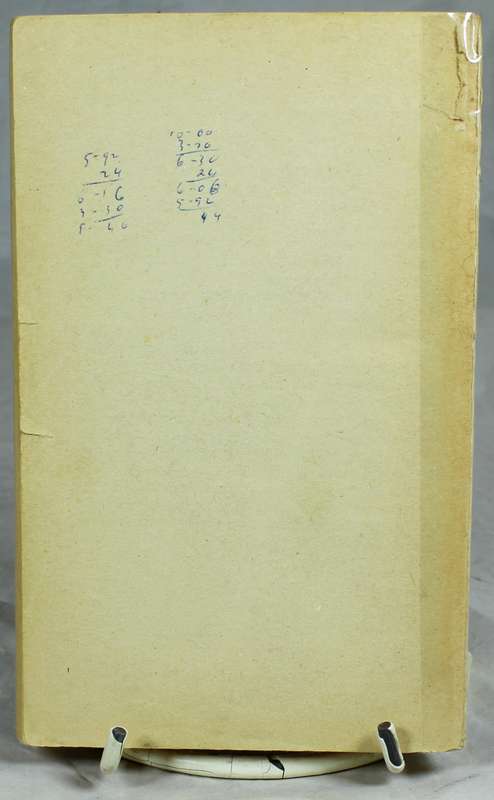 5-92
24
6-16
3-30
9-46
10-00
3-70
6-30
24
6-06
5-92